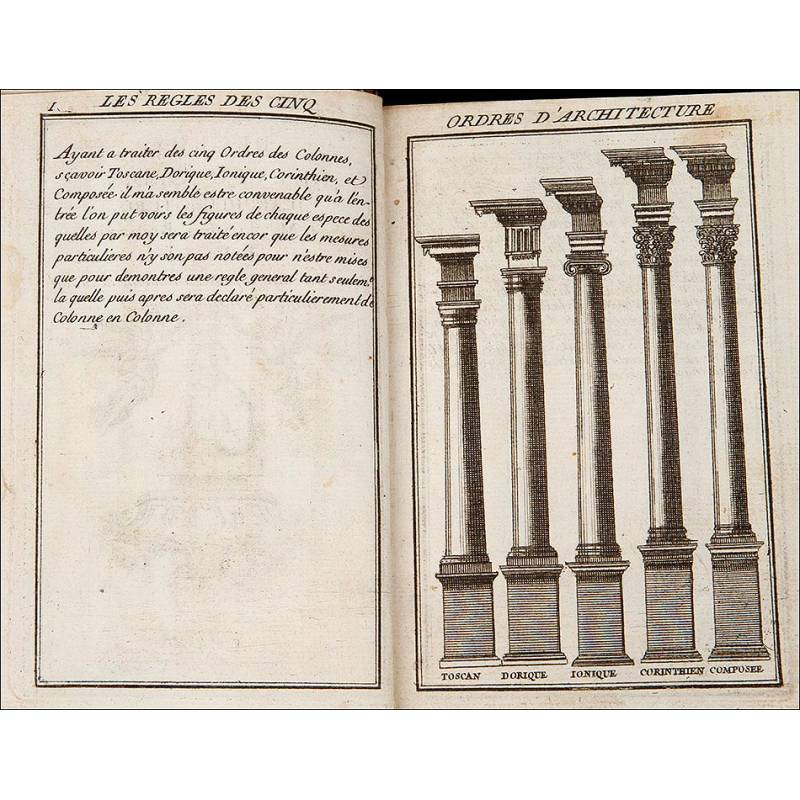 I.
LES REGLES DES CINQ
Ayant a traiter des cinq Ordres des Colonnes,
sçavoir Toscane, Dorique, Ionique, Corinthien, et
Composée il m'a semble estre convenable qu'a l'en-
trée l'on put voirs les figures de chaque espece des
quelles par moy sera traité encor que les mesures
particulieres n'y son pas notées pour n'estre mises
que pour demontres une regle general tant seulemt.
la quelle puis apres sera declaré particulierement de
Colonne en Colonne.
ORDRES D'ARCHITECTURE
TOSCAN DORIQUE IONIQUE CORINTHIEN COMPOSEE